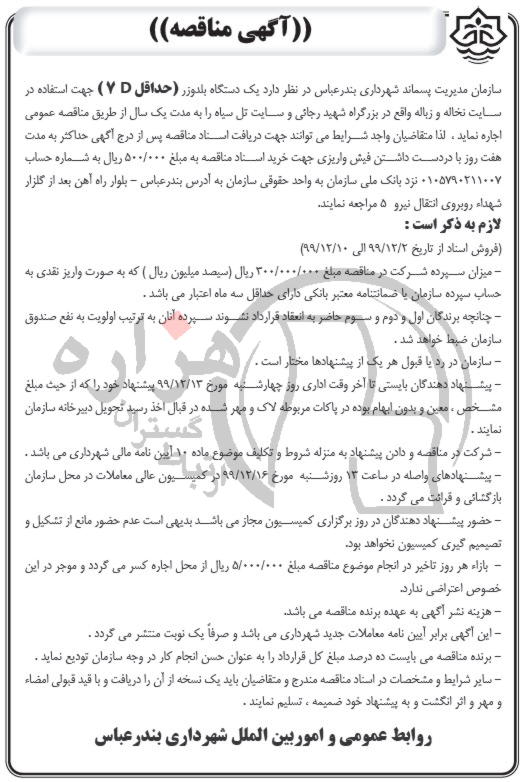 ((آگهی مناقصه))
سازمان مدیریت پسماند شهرداری بندرعباس در نظر دارد یک دستگاه بلدوزر (حداقل 7 D) جهت استفاده در
سایت نخاله و زباله واقع در بزرگراه شهید رجائی و سایت تل سیاه را به مدت یک سال از طریق مناقصه عمومی
اجاره نماید ، لذا متقاضیان واجد شرایط می توانند جهت دریافت اسناد مناقصه پس از درج آگهی حداکثر به مدت
هفت روز با دردست داشتن فیش واریزی جهت خرید اسناد مناقصه به مبلغ ۵۰۰/۰۰۰ ریال به شماره حساب
۰۱۰۵۷۹۰۲۱۱۰۰۷ نزد بانک ملی سازمان به واحد حقوقی سازمان به آدرس بندرعباس – بلوار راه آهن بعد از گلزار
شهداء روبروی انتقال نیرو ۵ مراجعه نمایند.
لازم به ذکر است :
(فروش اسناد از تاریخ ۹۹/۱۲/۲ الی ۹۹/۱۲/۱۰)
– میزان سپرده شرکت در مناقصه مبلغ ۳۰۰/۰۰۰/۰۰۰ ریال (سیصد میلیون ریال ) که به صورت واریز نقدی به
حساب سپرده سازمان یا ضمانتنامه معتبر بانکی دارای حداقل سه ماه اعتبار می باشد .
– چنانچه برندگان اول و دوم و سوم حاضر به انعقاد قرارداد نشوند سپرده آنان به ترتیب اولویت به نفع صندوق
سازمان ضبط خواهد شد .
– سازمان در رد یا قبول هر یک از پیشنهادها مختار است .
– پیشنهاد دهندگان بایستی تا آخر وقت اداری روز چهارشنبه مورخ ۹۹/۱۲/۱۳ پیشنهاد خود را که از حیث مبلغ
مشخص ، معین و بدون ابهام بوده در پاکات مربوطه لاک و مهر شده در قبال اخذ رسید تحویل دبیرخانه سازمان
نمایند .
– شرکت در مناقصه و دادن پیشنهاد به منزله شروط و تکلیف موضوع ماده ۱۰ آیین نامه مالی شهرداری می باشد .
– پیشنهادهای واصله در ساعت ۱۳ روزشنبه مورخ ۹۹/۱۲/۱۶ در کمیسیون عالی معاملات در محل سازمان
بازگشائی و قرائت می گردد .
– حضور پیشنهاد دهندگان در روز برگزاری کمیسیون مجاز می باشد بدیهی است عدم حضور مانع از تشکیل و
تصیمیم گیری کمیسیون نخواهد بود.
– بازاء هر روز تاخیر در انجام موضوع مناقصه مبلغ ۵/۰۰۰/۰۰۰ ریال از محل اجاره کسر می گردد و موجر در این
خصوص اعتراضی ندارد.
– هزینه نشر آگهی به عهده برنده مناقصه می باشد.
– این آگهی برابر آیین نامه معاملات جدید شهرداری می باشد و صرفاً یک نوبت منتشر می گردد .
– برنده مناقصه می بایست ده درصد مبلغ کل قرارداد را به عنوان حسن انجام کار در وجه سازمان تودیع نماید .
– سایر شرایط و مشخصات در اسناد مناقصه مندرج و متقاضیان باید یک نسخه از آن را دریافت و با قید قبولی امضاء
و مهر و اثر انگشت و به پیشنهاد خود ضمیمه ، تسلیم نمایند .
روابط عمومی و اموربین الملل شهرداری بندرعباس
هزاره
گستران
رباط